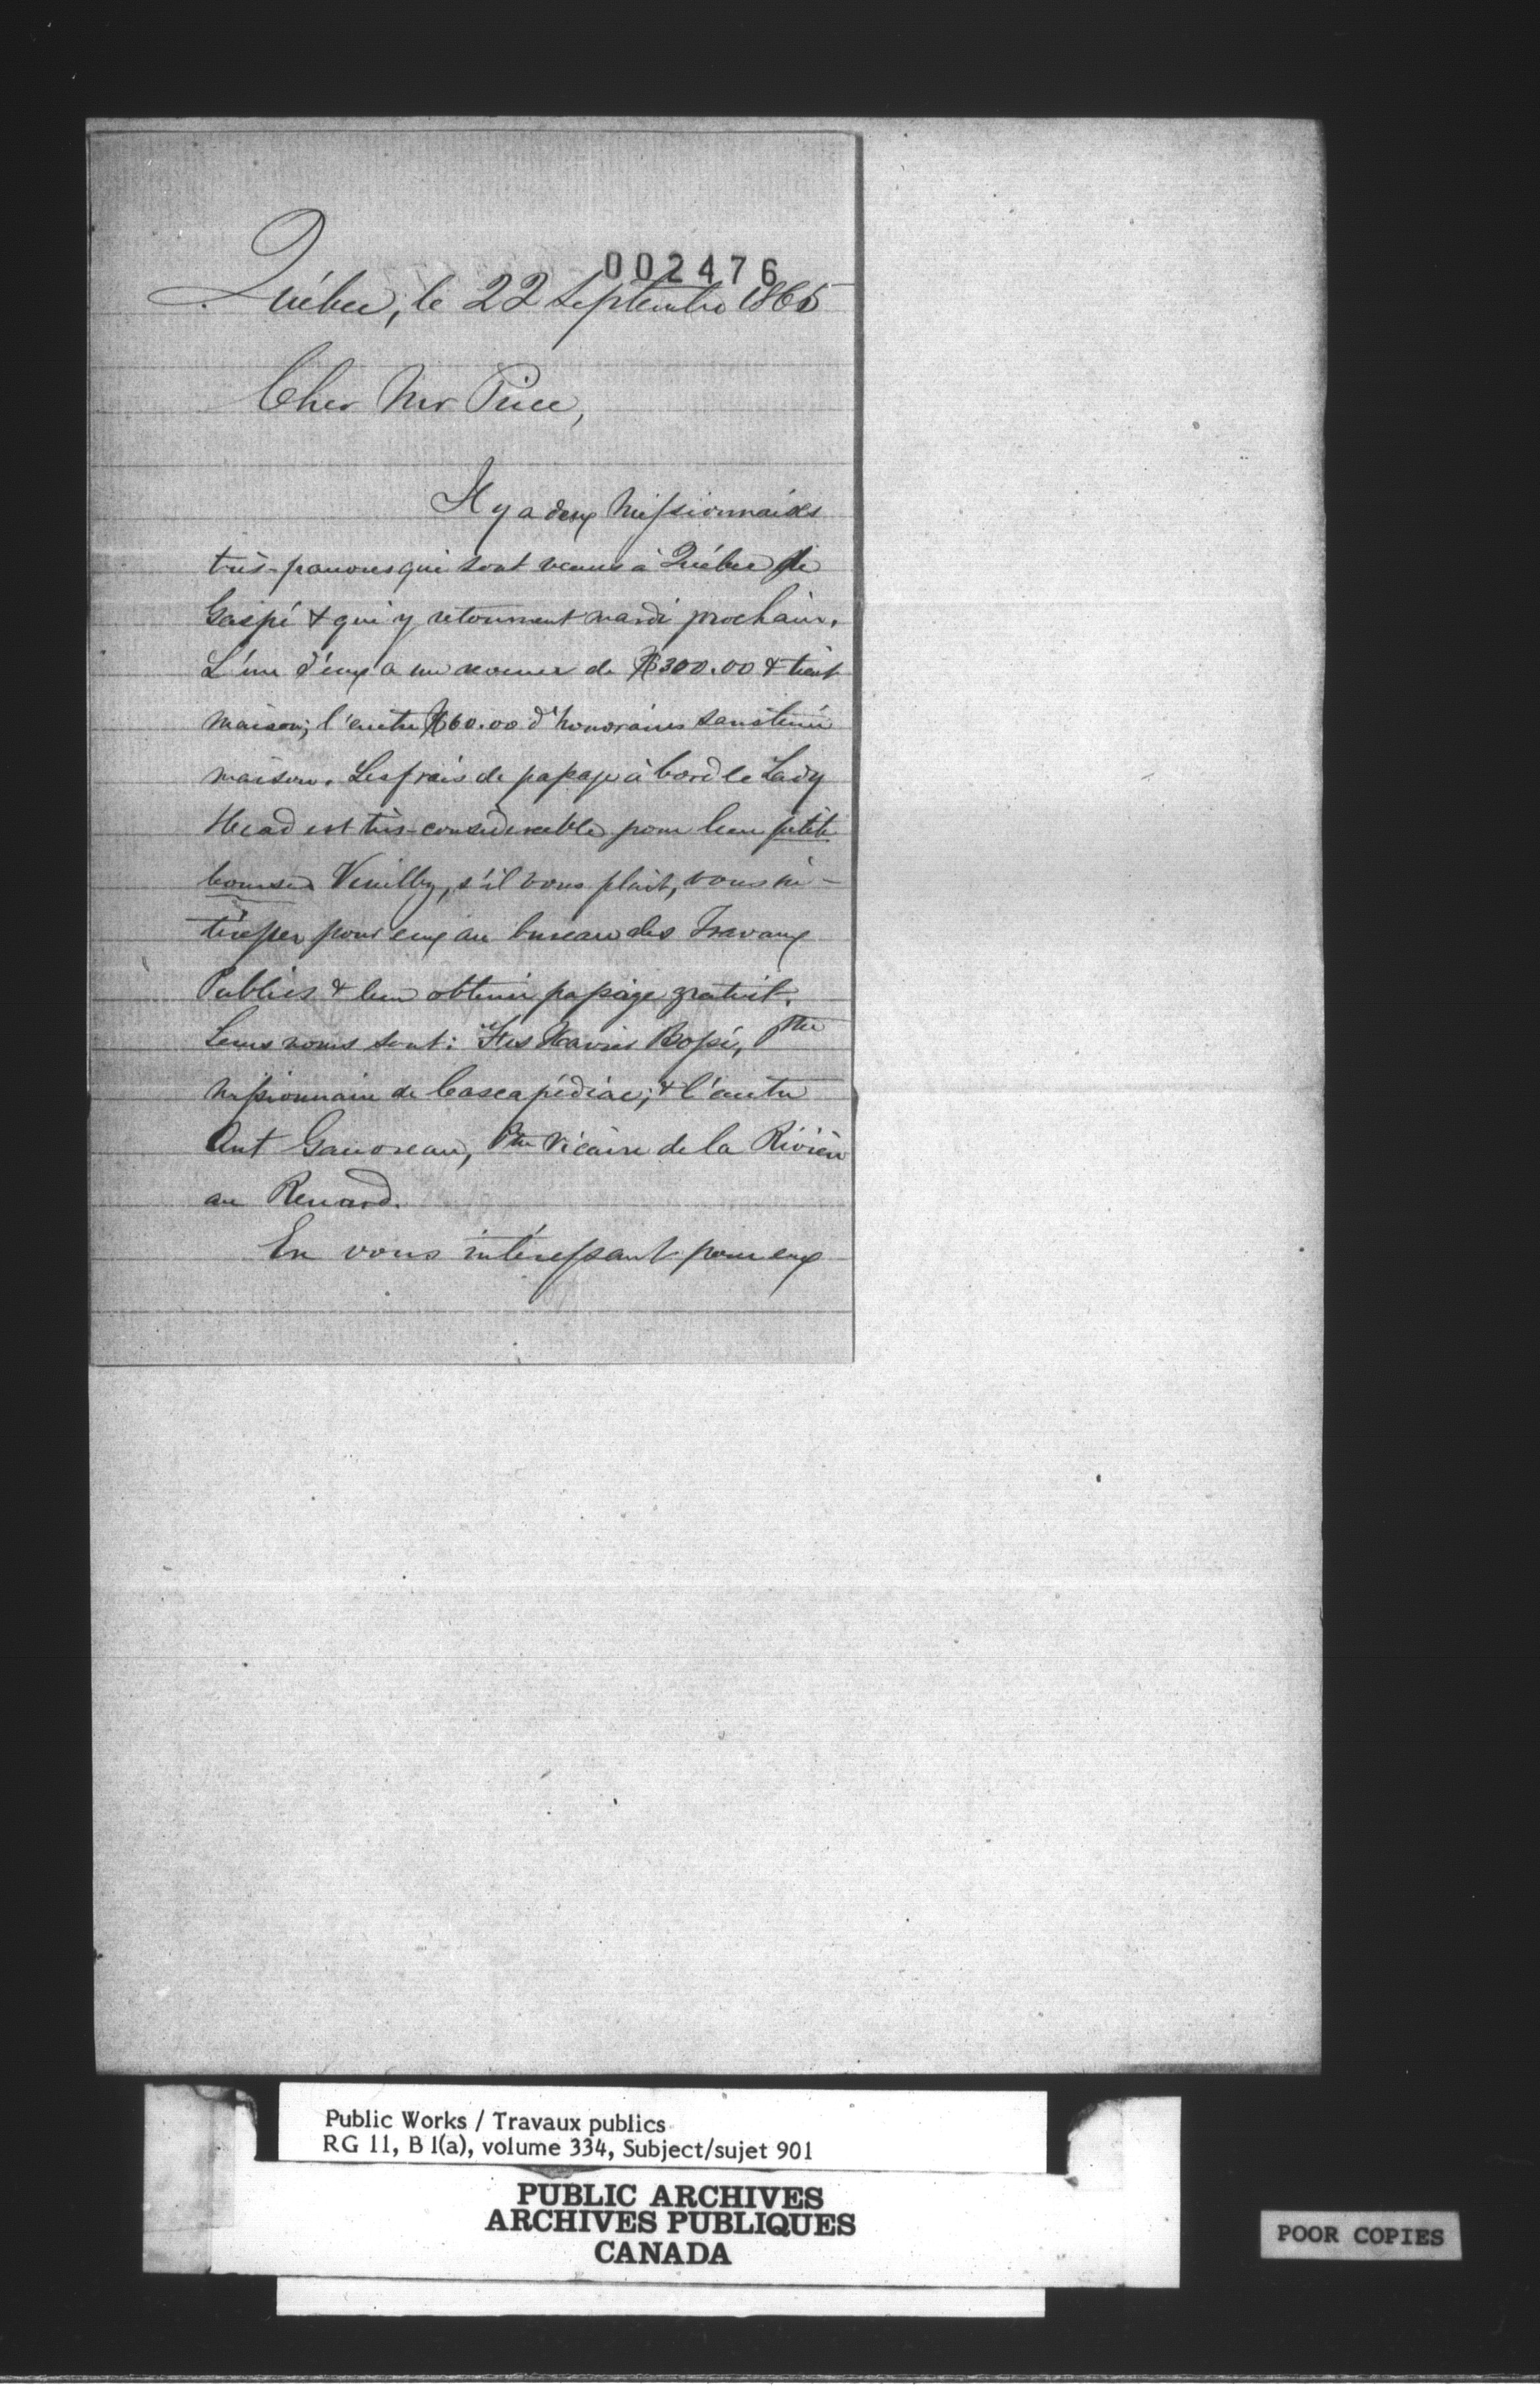 002476
Québec, le 22 Septembre 1865
Cher Mr Price,
Il y a deux Missionnaires
très-pauvres qui sont venus à Québec de
Gaspé & qui y retournent mardi prochain.
L'un d'eux a un revenu de $300.00 & tient
maison; l'autre $60.00 d'honoraires sans tenir
maison. Les frais de passage à bord le Lady
Head est très-considerable pour leur petite
bourse. Veuillez, s'il vous plait, vous in-
téresser pour eux au bureau des Travaux
Publics & leur obtenir passage gratuit.
Leurs noms sont: Frs Xavier Bossé, Ptre
Missionnaire de Cascapédiac; & l'autre
Ant Gauvreau, Ptre Vicaire de la Rivière
au Renard.
En vous intéressant pour eux
Public Works / Travaux publics
RG 11, B 1(a), volume 334, Subject/sujet 901
PUBLIC ARCHIVES
ARCHIVES PUBLIQUES
CANADA
POOR COPIES